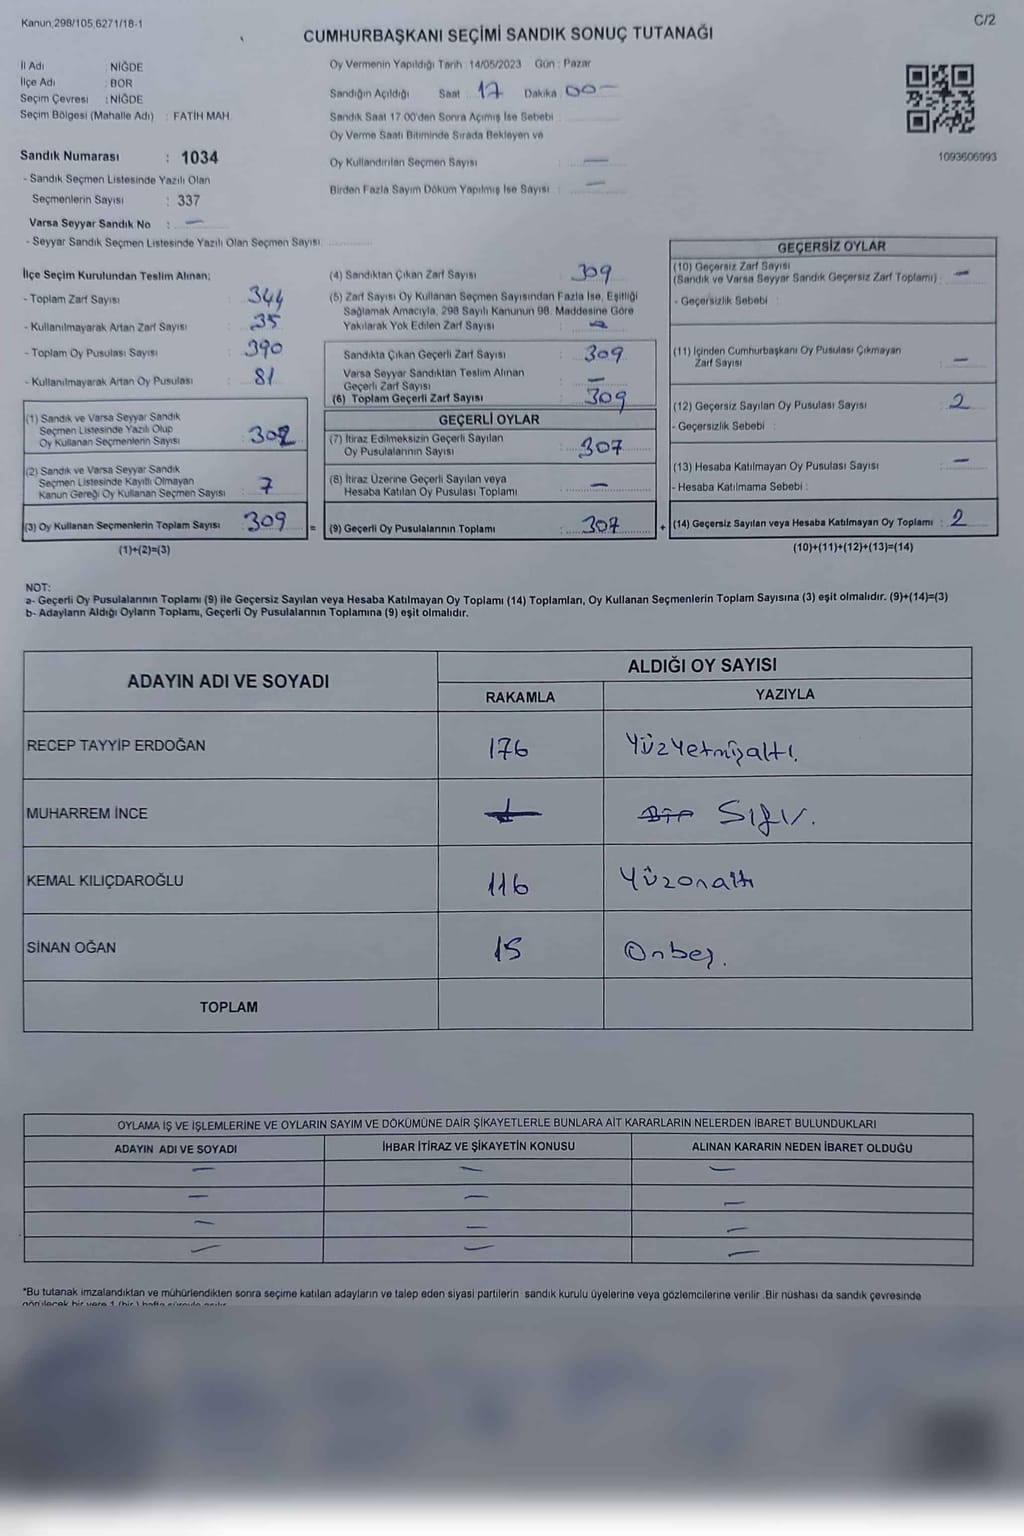 Kanun 298/105,6271/18-1
C/2
CUMHURBAŞKANI SEÇİMİ SANDIK SONUÇ TUTANAĞI
İl Adı : NİĞDE
İlçe Adı : BOR
Seçim Çevresi : NİĞDE
Seçim Bölgesi (Mahalle Adı) : FATİH MAH.
Sandık Numarası : 1034
- Sandık Seçmen Listesinde Yazılı Olan
Seçmenlerin Sayısı : 337
Varsa Seyyar Sandık No : —
- Seyyar Sandık Seçmen Listesinde Yazılı Olan Seçmen Sayısı:
Oy Vermenin Yapıldığı Tarih : 14/05/2023 Gün : Pazar
Sandığın Açıldığı Saat 17 Dakika 00 —
Sandık Saat 17.00'den Sonra Açımış İse Sebebi :
Oy Verme Saati Bitiminde Sırada Bekleyen ve
Oy Kullandırılan Seçmen Sayısı : —
Birden Fazla Sayım Döküm Yapılmış İse Sayısı : —
1093606993
İlçe Seçim Kurulundan Teslim Alınan;
- Toplam Zarf Sayısı : 344
- Kullanılmayarak Artan Zarf Sayısı : 35
- Toplam Oy Pusulası Sayısı : 390
- Kullanılmayarak Artan Oy Pusulası : 81
(1) Sandık ve Varsa Seyyar Sandık
Seçmen Listesinde Yazılı Olup
Oy Kullanan Seçmenlerin Sayısı : 302
(2) Sandık ve Varsa Seyyar Sandık
Seçmen Listesinde Kayıtlı Olmayan
Kanun Gereği Oy Kullanan Seçmen Sayısı : 7
(3) Oy Kullanan Seçmenlerin Toplam Sayısı : 309
(1)+(2)=(3)
=
(4) Sandıktan Çıkan Zarf Sayısı : 309
(5) Zarf Sayısı Oy Kullanan Seçmen Sayısından Fazla İse, Eşitliği
Sağlamak Amacıyla, 298 Sayılı Kanunun 98. Maddesine Göre
Yakılarak Yok Edilen Zarf Sayısı :
Sandıkta Çıkan Geçerli Zarf Sayısı : 309
Varsa Seyyar Sandıktan Teslim Alınan
Geçerli Zarf Sayısı : —
(6) Toplam Geçerli Zarf Sayısı : 309
GEÇERLİ OYLAR
(7) İtiraz Edilmeksizin Geçerli Sayılan
Oy Pusulalarının Sayısı : 307
(8) İtiraz Üzerine Geçerli Sayılan veya
Hesaba Katılan Oy Pusulası Toplamı : —
(9) Geçerli Oy Pusulalarının Toplamı : 307
+
GEÇERSİZ OYLAR
(10) Geçersiz Zarf Sayısı
(Sandık ve Varsa Seyyar Sandık Geçersiz Zarf Toplamı) : —
- Geçersizlik Sebebi :
(11) İçinden Cumhurbaşkanı Oy Pusulası Çıkmayan
Zarf Sayısı : —
(12) Geçersiz Sayılan Oy Pusulası Sayısı : 2
- Geçersizlik Sebebi :
(13) Hesaba Katılmayan Oy Pusulası Sayısı : —
- Hesaba Katılmama Sebebi :
(14) Geçersiz Sayılan veya Hesaba Katılmayan Oy Toplamı : 2
(10)+(11)+(12)+(13)=(14)
NOT:
a- Geçerli Oy Pusulalarının Toplamı (9) ile Geçersiz Sayılan veya Hesaba Katılmayan Oy Toplamı (14) Toplamları, Oy Kullanan Seçmenlerin Toplam Sayısına (3) eşit olmalıdır. (9)+(14)=(3)
b- Adayların Aldığı Oyların Toplamı, Geçerli Oy Pusulalarının Toplamına (9) eşit olmalıdır.
ADAYIN ADI VE SOYADI
ALDIĞI OY SAYISI
RAKAMLA YAZIYLA
RECEP TAYYİP ERDOĞAN 176 Yüzyetmişaltı.
MUHARREM İNCE Bir Sıfır.
KEMAL KILIÇDAROĞLU 116 Yüzonaltı
SİNAN OĞAN 15 Onbeş.
TOPLAM
OYLAMA İŞ VE İŞLEMLERİNE VE OYLARIN SAYIM VE DÖKÜMÜNE DAİR ŞİKAYETLERLE BUNLARA AİT KARARLARIN NELERDEN İBARET BULUNDUKLARI
ADAYIN ADI VE SOYADI İHBAR İTİRAZ VE ŞİKAYETİN KONUSU ALINAN KARARIN NEDEN İBARET OLDUĞU
— — —
— — —
— — —
— — —
*Bu tutanak imzalandıktan ve mühürlendikten sonra seçime katılan adayların ve talep eden siyasi partilerin sandık kurulu üyelerine veya gözlemcilerine verilir .Bir nüshası da sandık çevresinde